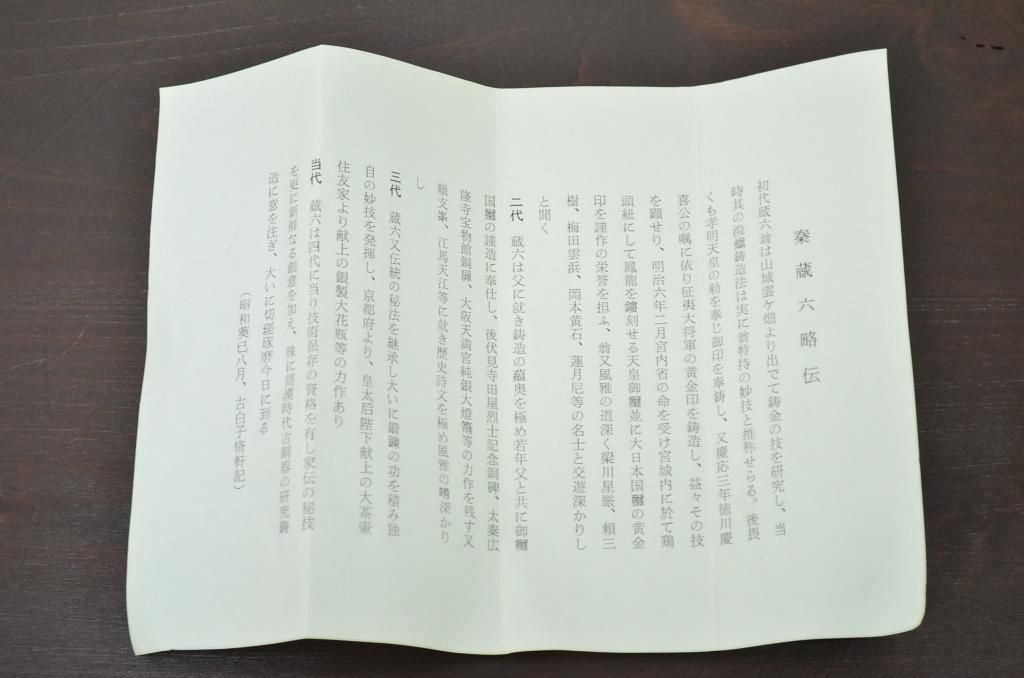 秦蔵六略伝
初代蔵六翁は山城雲ケ畑より出でて鋳金の技を研究し、当
時其の流蠟鋳造法は実に翁特持の妙技と推称せらる。後畏
くも孝明天皇の勅を奉じ御印を奉鋳し、又慶応三年徳川慶
喜公の嘱に依り征夷大将軍の黄金印を鋳造し、益々その技
を顕せり、明治六年二月宮内省の命を受け宮城内に於て鶏
頭紐にして鳳龍を鏤刻せる天皇御璽並に大日本国璽の黄金
印を謹作の栄誉を担ふ、翁又風雅の道深く梁川星厳、頼三
樹、梅田雲浜、岡本黄石、蓮月尼等の名士と交遊深かりし
と聞く
二代 蔵六は父に就き鋳造の蘊奥を極め若年父と共に御璽
国璽の謹造に奉仕し、後伏見寺田屋烈士記念銅碑、太秦広
隆寺宝物館銅扉、大阪天満宮純銀大燈籠等の力作を残す又
頼支峯、江馬天江等に就き歴史詩文を極め風雅の嗜深かり
し
三代 蔵六又伝統の秘法を継承し大いに鍛錬の功を積み独
自の妙技を発揮し、京都府より、皇太后陛下献上の大茶壷
住友家より献上の銀製大花瓶等の力作あり
当代 蔵六は四代に当り技術保存の資格を有し家伝の秘技
を更に新鮮なる創意を加え、殊に周漢時代古銅器の研究鋳
造に意を注ぎ、大いに切磋琢磨今日に到る
（昭和葵巳八月、古白子脩軒記）